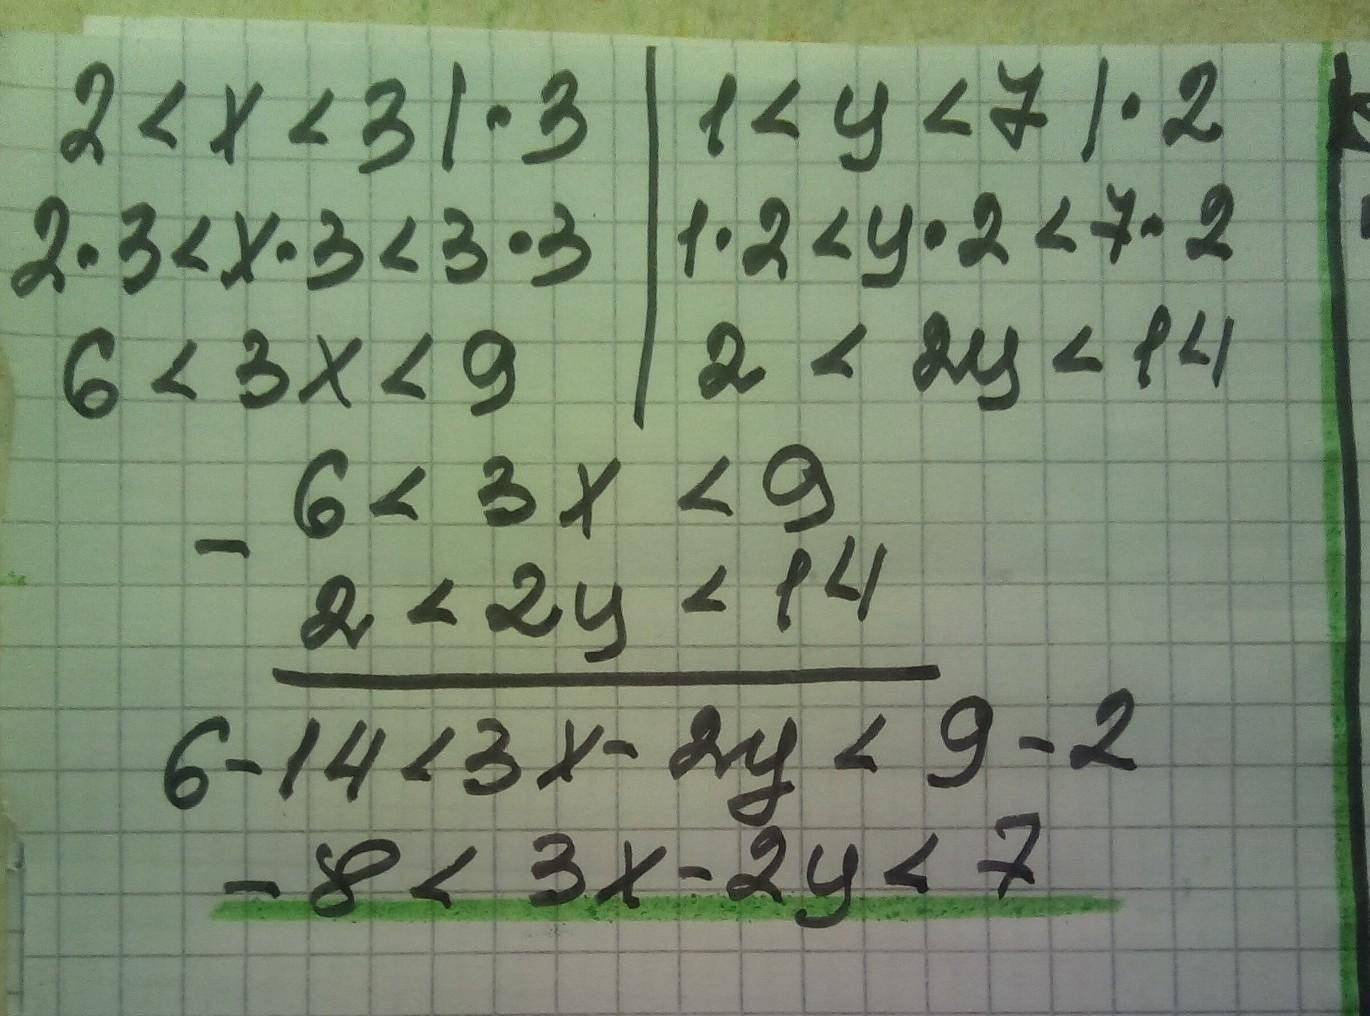 2 < x < 3 | · 3 | 1 < y < 7 | · 2
2 · 3 < x · 3 < 3 · 3 | 1 · 2 < y · 2 < 7 · 2
6 < 3x < 9 | 2 < 2y < 14
6 < 3x < 9
-
2 < 2y < 14
6 - 14 < 3x - 2y < 9 - 2
- 8 < 3x - 2y < 7